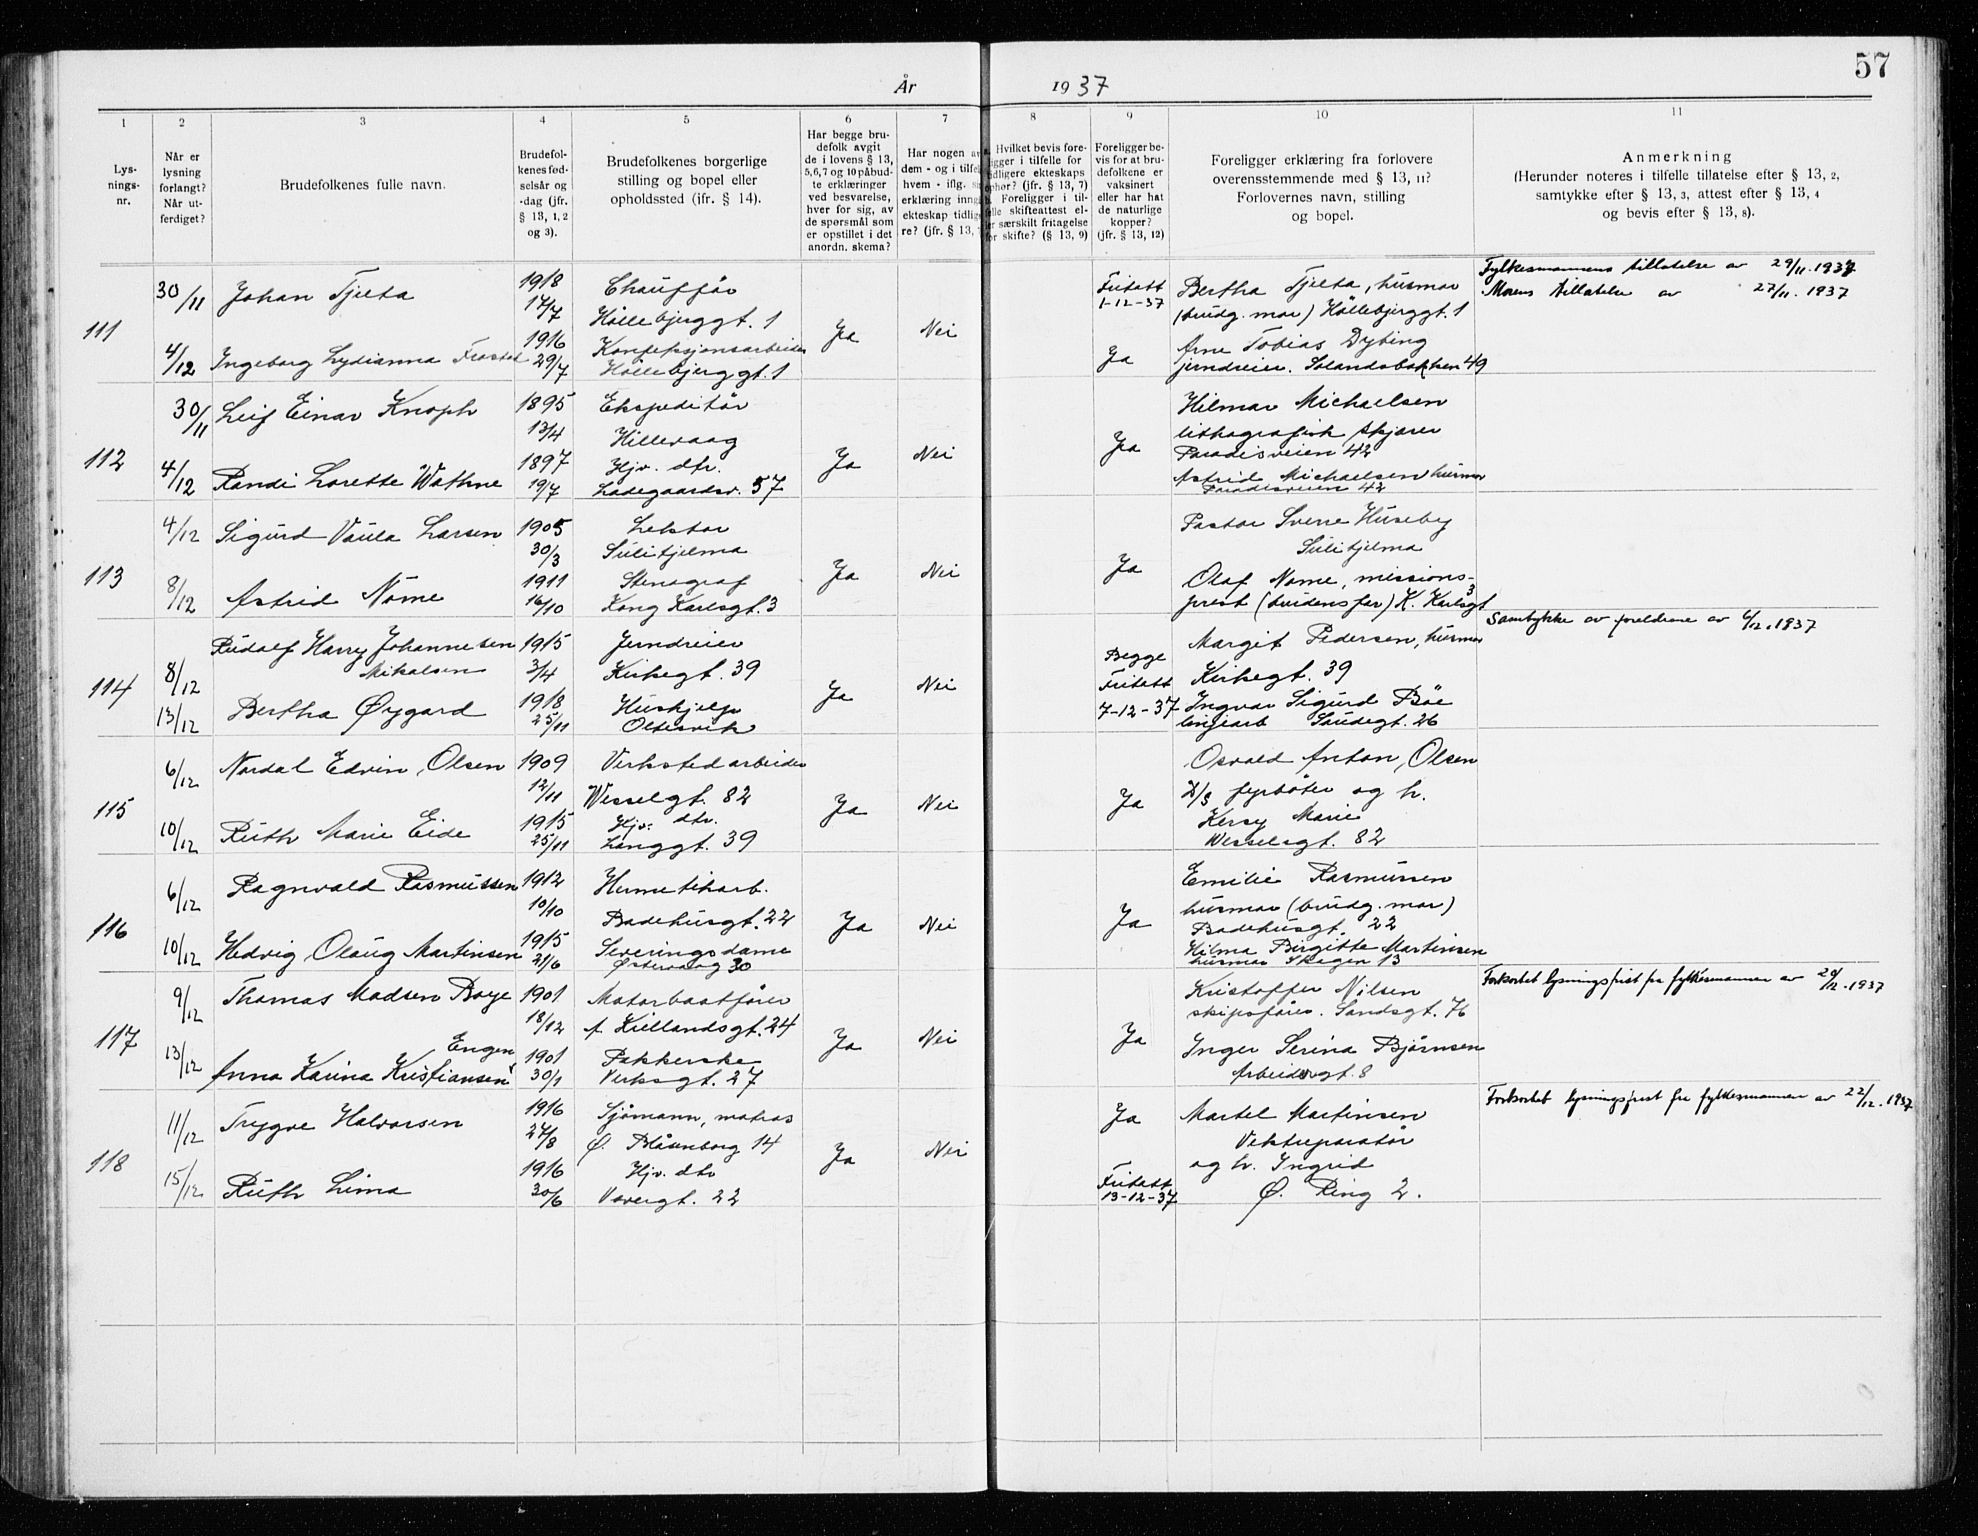 57
År 1937
1 2 3 4 5 6 7 8 9 10 11
Lys-
nings-
nr.
Når er
lysning
forlangt?
Når ut-
ferdiget?
Brudefolkenes fulle navn.
Brudefol-
kenes fød-
selsår og
-dag (jfr.
§ 13, 1, 2
og 3).
Brudefolkenes borgerlige
stilling og bopel eller
opholdssted (jfr. § 14).
Har begge bru-
defolk avgit
de i lovens § 13,
5,6,7 og 10 påbud-
te erklæringer
ved besvarelse,
hver for sig, av
de spørsmål som
er opstillet i det
anordn. skema?
Har nogen av
dem - og i tilfel
hvem - iflg. si
erklæring inng
ekteskap tidlig
re? (jfr. § 13,
a. Hvilket bevis fore-
ligger i tilfelle for
tidligere ekteskaps
ophør? (jfr. § 13, 7)
b. Foreligger i til-
felle skifteattest el-
ler særskilt fritagelse
for skifte? (§ 13, 9)
Foreligger be-
vis for at bru-
defolkene er
vaksinert
eller har hat
de naturlige
kopper?
(jfr. § 13, 12)
Foreligger erklæring fra forlovere
overensstemmende med § 13, 11?
Forlovernes navn, stilling
og bopel.
Anmerkning
(Herunder noteres i tilfelle tillatelse efter § 13, 2,
samtykke efter § 13, 3, attest efter § 13, 4
og bevis efter § 13, 8).
111
30/11
4/12
Johan Tjelta
Ingeborg Lydianna Frostad
1918
17/7
1916
29/7
Chauffør
Høllebjerggt. 1
Konfeksjonsarbeider
Høllebjerggt. 1
Ja
Nei
Fritatt
1-12-37
Ja
Bertha Tjelta, husmor
(brudg. mor) Høllebjerggt. 1
Arne Tobias Dybing
jerndreier. Solandsbakken 49
Fylkesmannens tillatelse av 29/11. 1937
Morens tillatelse av 27/11. 1937
112
30/11
4/12
Leif Einar Knoph
Randi Lorette Wathne
1895
13/4
1897
19/7
Ekspeditør
Hillevaag
Hjv. dtr.
Ladegaardsv. 57
Ja
Nei
Ja
Hilmar Michaelsen
lithografisk skjærer
Paradisveien 42
Astrid Michaelsen husmor
Paradisveien 42
113
4/12
8/12
Sigurd Vaula Larsen
Astrid Nome
1905
30/3
1911
16/10
Lektor
Sulitjelma
Stenograf
Kong Karlsgt. 3
Ja
Nei
Ja
Pastor Sverre Huseby
Sulitjelma
Olaf Nome, missions-
prest (brudens far) K. Karlsgt 3
114
8/12
13/12
Rudolf Harry Johannesen
Mikalsen
Bertha Øygard
1915
3/4
1918
25/11
Jerndreier
Kirkegt. 39
Huskjelp
Oltesvik
Ja
Nei
Begge
Fritatt
7-12-37
Margit Pedersen, husmor
Kirkegt. 39
Ingvar Sigurd Bøe
linjearb Saudegt. 26
Samtykke av foreldrene av 6/12. 1937
115
6/12
10/12
Nordal Edvin Olsen
Ruth Marie Eide
1909
12/11
1915
25/11
Verkstedarbeider
Wesselgt. 82
Hjv. dtr.
Langgt. 39
Ja
Nei
Ja
Osvald Anton Olsen
D/S fyrbøter og h.
Kersy Marie
Wesselsgt. 82
116
6/12
10/12
Ragnvald Rasmussen
Hedvig Olaug Martinsen
1912
10/10
1915
21/6
Hermetikarb.
Badehusgt. 22
Serveringsdame
Østervaag 30
Ja
Nei
Ja
Emilie Rasmussen
husmor (brudg. mor)
Badehusgt. 22
Hilma Birgitte Martinsen
husmor Skagen 13
117
9/12
13/12
Thomas Madsen Boye
Engen
Anna Karina Kristiansen
1901
18/12
1901
30/1
Motorbaatfører
A. Kiellandsgt. 24
Pakkerske
Verksgt. 27
Ja
Nei
Ja
Kristoffer Nilsen
skipsfører. Sandsgt. 76
Inger Serina Bjørnsen
Arbeidergt. 8
Forkortet lysningsfrist fra fylkesmannen av 20/12. 1937
118
11/12
15/12
Trygve Halvorsen
Ruth Lima
1916
27/8
1916
30/6
Sjømann, matros
Ø. Blåsenborg 14
Hjv. dtr
Vævergt. 22
Ja
Nei
Ja
Fritatt
13-12-37
Martel Martinsen
Vektreparatør
og h. Ingrid
Ø. Ring 2.
Forkortet lysningsfrist fra fylkesmannen av 22/12. 1937